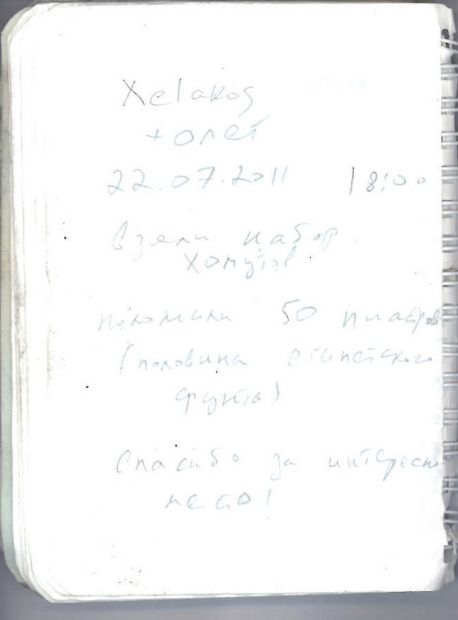 Xelakos
+ олег
22.07.2011 18:00
Взяли набор
хомутов
положили 50 пиастров
(половина египетского
фунта)
Спасибо за интересное
место!